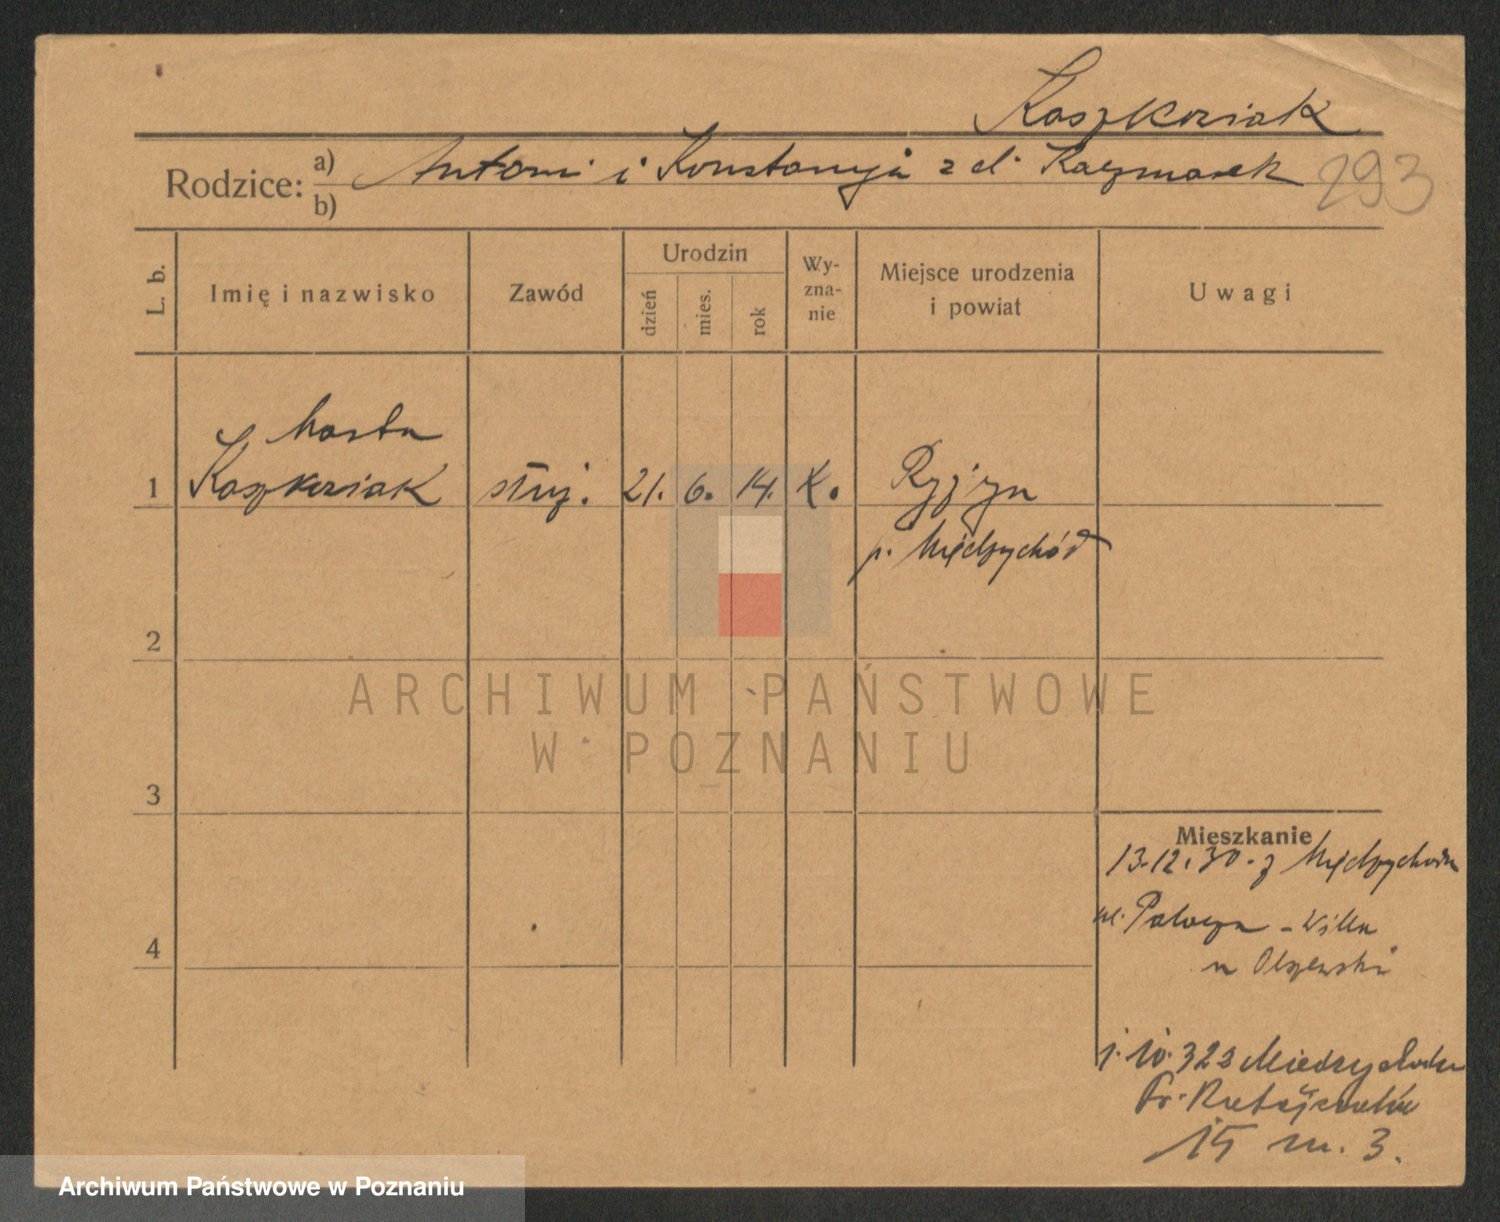 Kaszkoziak
Rodzice: a) Antoni i Konstancja z d. Kaczmarek
b)
293
L. b.
Imię i nazwisko
Zawód
Urodzin
dzień
mies.
rok
Wy-
zna-
nie
Miejsce urodzenia
i powiat
Uwagi
Marta
1 służ. 21. 6. 14. K.
p. Międzychód
2
3
4
Mieszkanie
13.12.30. z Międzychodu
ul. - Willa
u Olszewski
323 Międzychodu
Fr. Ratajczaków
15 m. 3.
ARCHIWUM PAŃSTWOWE
W POZNANIU
Archiwum Państwowe w Poznaniu